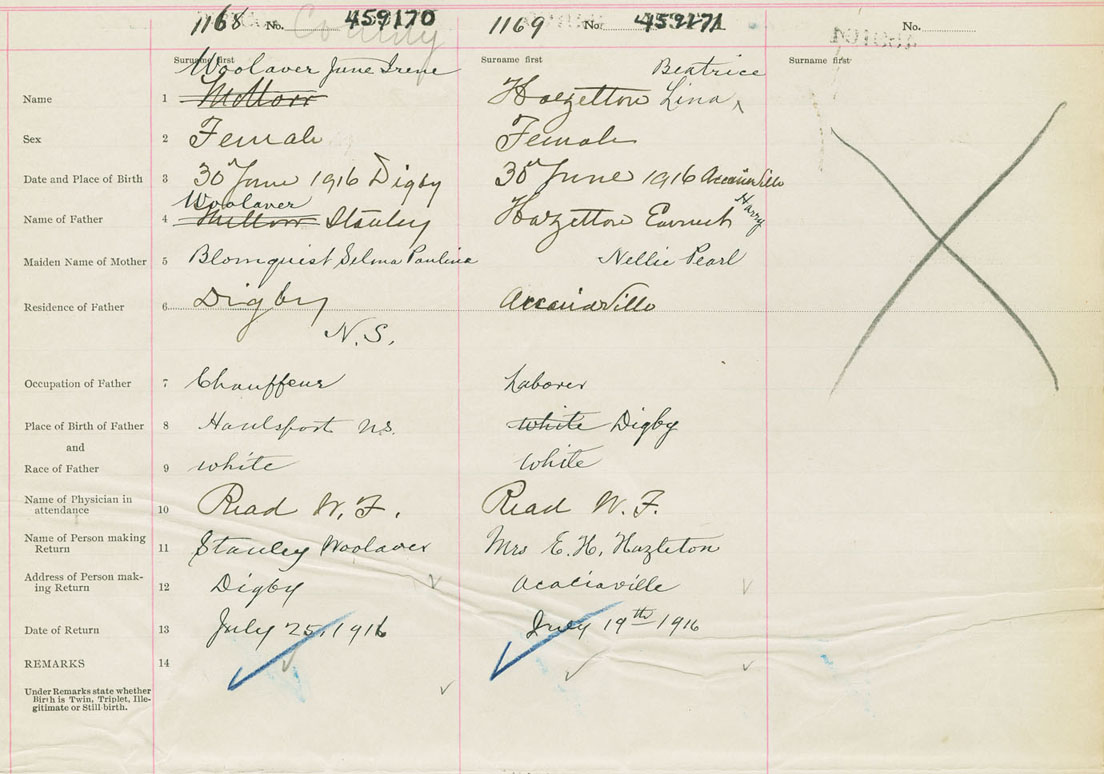 1168 No. 459170 1169 No. 459171 No.
County
Surname first Surname first Surname first
Woolaver June Irene Beatrice
Name 1 Hazelton Lina
Sex 2 Female Female
Date and Place of Birth 3 30 June 1916 Digby 30 June 1916 Acaciaville
Woolaver Harry
Name of Father 4 Stanley Hazelton
Maiden Name of Mother 5 Blomquist Selma Paulina Nellie Pearl
Residence of Father 6 Digby Acaciaville
N.S.
Occupation of Father 7 Chauffeur Laborer
Place of Birth of Father 8 Hantsport N.S. white Digby
and
Race of Father 9 white white
Name of Physician in
attendance 10 Read W. F. Read W. F.
Name of Person making
Return 11 Stanley Woolaver Mrs E. H. Hazleton
Address of Person mak-
ing Return 12 Digby Acaciaville
Date of Return 13 July 25, 1916 July 19th 1916
REMARKS 14
Under Remarks state whether
Birth is Twin, Triplet, Ille-
gitimate or Still-birth.